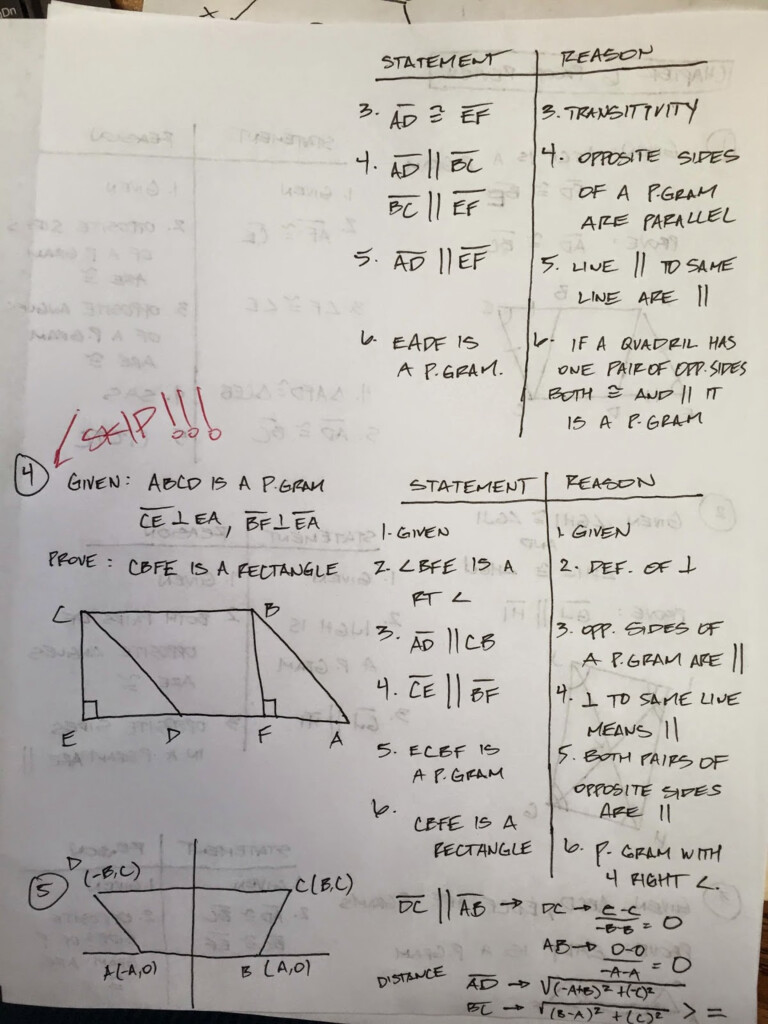 STATEMENT | REASON
3. AD ≅ EF | 3. TRANSITIVITY
4. AD || BC | 4. OPPOSITE SIDES
BC || EF | OF A P.GRAM
ARE PARALLEL
5. AD || EF | 5. LINE || TO SAME
LINE ARE ||
6. EADF IS | 6. IF A QUADRIL HAS
A P.GRAM. | ONE PAIR OF OPP. SIDES
BOTH ≅ AND || IT
IS A P.GRAM
SKIP!!!
4 GIVEN: ABCD IS A P.GRAM
CE ⊥ EA, BF ⊥ EA
PROVE: CBFE IS A RECTANGLE
C B
E D F A
STATEMENT | REASON
1. GIVEN | 1. GIVEN
2. ∠BFE IS A | 2. DEF. OF ⊥
RT ∠
3. AD || CB | 3. OPP. SIDES OF
A P.GRAM ARE ||
4. CE || BF | 4. ⊥ TO SAME LINE
MEANS ||
5. ECBF IS | 5. BOTH PAIRS OF
A P.GRAM | OPPOSITE SIDES
ARE ||
6. CBFE IS A | 6. P-GRAM WITH
RECTANGLE | 4 RIGHT ∠.
5 D
(-B,C) C(B,C)
A(-A,0) B (A,0)
DC || AB → DC → C-C/-B-B = 0
AB → 0-0/-A-A = 0
DISTANCE AD → √(-A+B)² + (-C)²
BC → √(B-A)² + (C)² > =